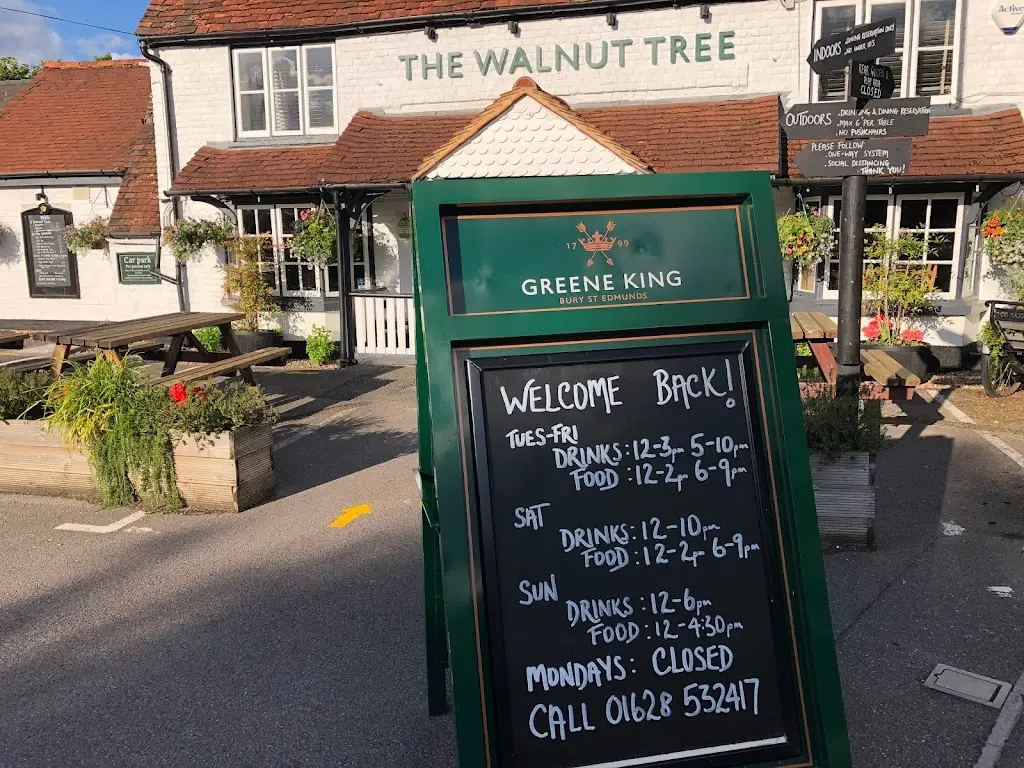 THE WALNUT TREE
Active
INDOORS . DINING RESERVATION ONLY
. NO UNDER 16'S
REAR GARDEN &
PLAY AREA
CLOSED
OUTDOORS . DRINKING & DINING RESERVATION
. MAX 6 PER TABLE
. NO PUSHCHAIRS
PLEASE FOLLOW:
. ONE-WAY SYSTEM
. SOCIAL DISTANCING
. THANK YOU!
Car park
17 99
GREENE KING
BURY ST EDMUNDS
WELCOME BACK!
TUES-FRI
DRINKS: 12-3pm 5-10pm
FOOD: 12-2pm 6-9pm
SAT
DRINKS: 12-10pm
FOOD: 12-2pm 6-9pm
SUN
DRINKS: 12-6pm
FOOD: 12-4:30pm
MONDAYS: CLOSED
CALL 01628 532417